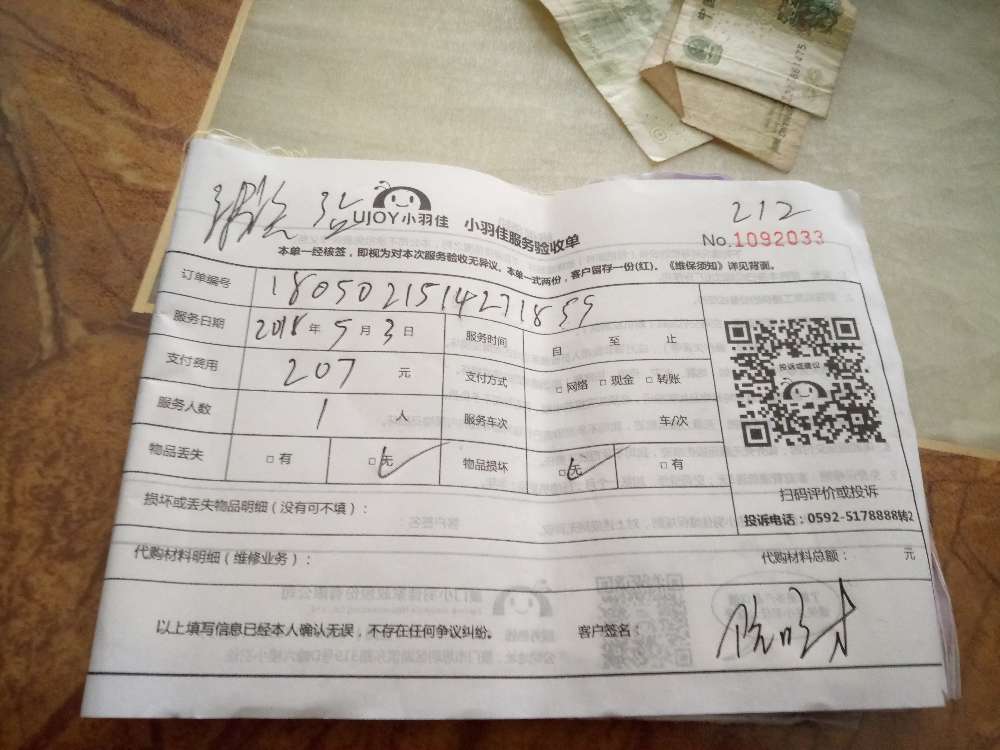 212
UJOY小羽佳 小羽佳服务验收单
No.1092033
本单一经核签，即视为对本次服务验收无异议。本单一式两份，客户留存一份(红)。《维保须知》详见背面。
订单编号 1805021514271855
服务日期 2018年5月3日 服务时间 自 至 止
支付费用 207 元 支付方式 □网络 □现金 □转账
服务人数 1 人 服务车次 车/次
物品丢失 □有 □无 物品损坏 □无 □有
投诉或建议
扫码评价或投诉
损坏或丢失物品明细（没有可不填）：
投诉电话：0592-5178888转2
代购材料明细（维修业务）： 代购材料总额： 元
以上填写信息已经本人确认无误，不存在任何争议纠纷。 客户签名：